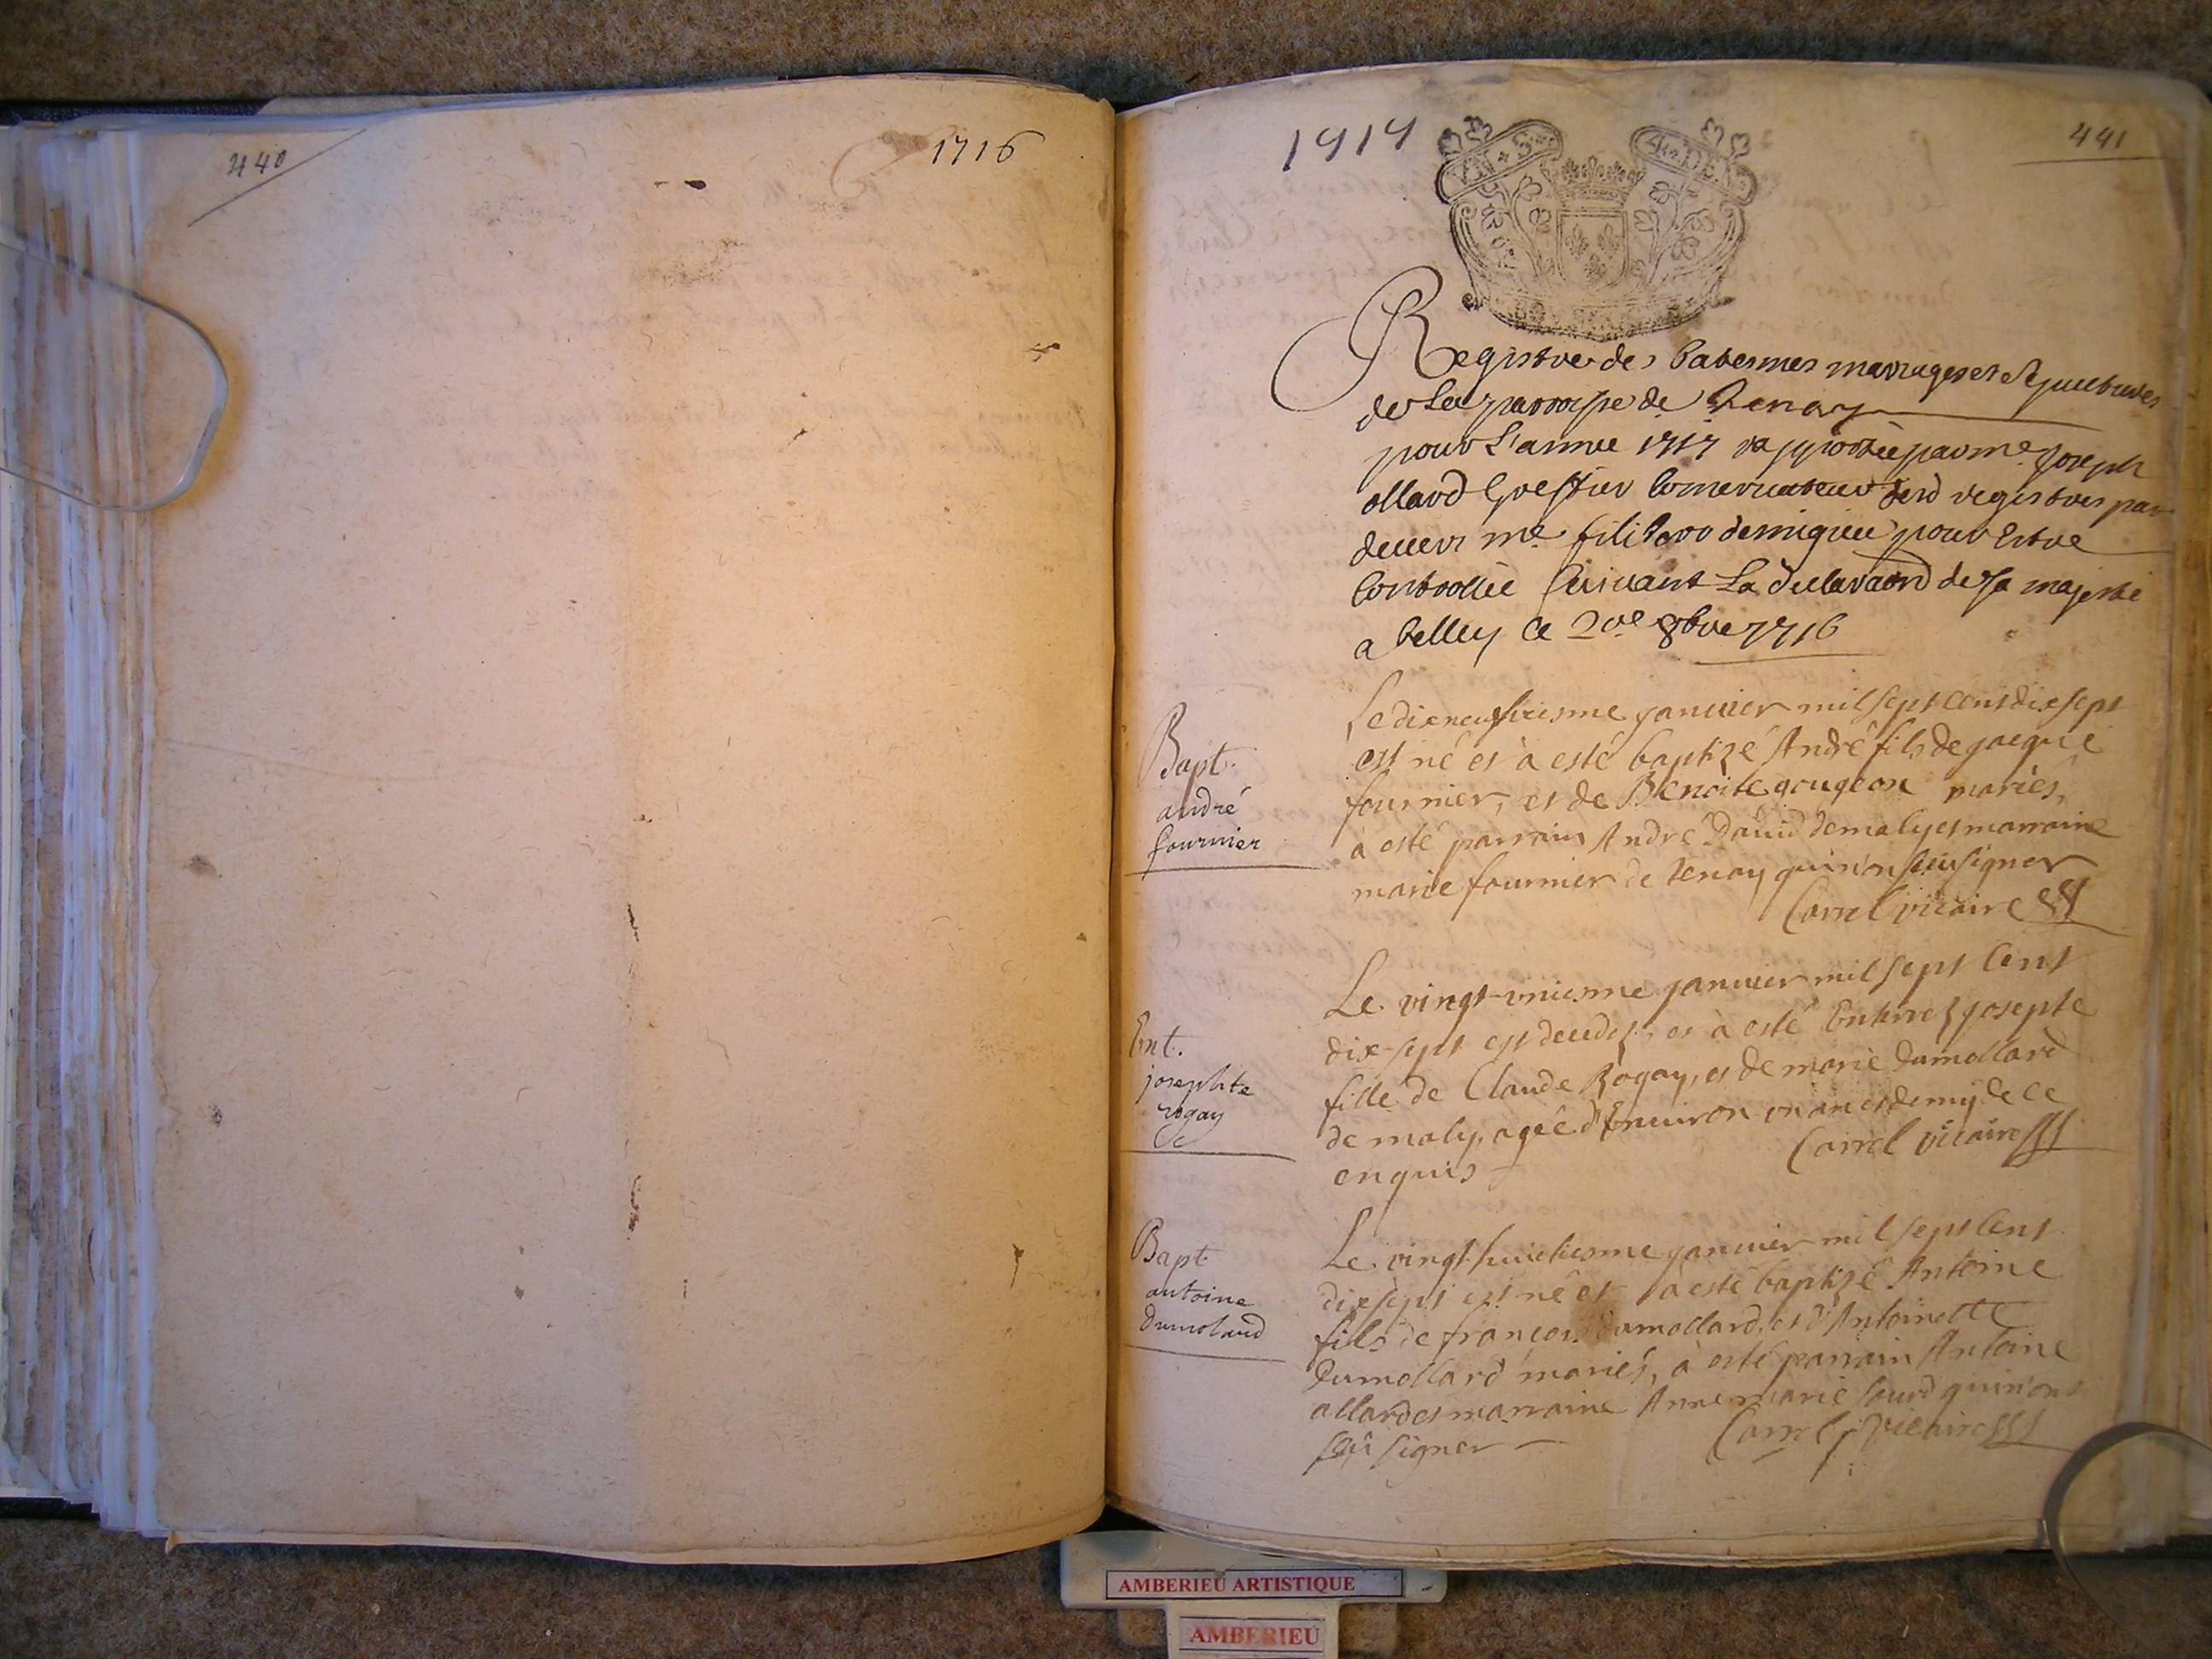 440
1716
1717
441
Registre des batesmes mariages et sepultures
de la parroisse de Tenay
pour l'année 1717 rapportée par me. Joseph
ollard greffier conservateur desd registres par
devers me. filibert demigieu pour estre
controllée suivant la declaraond de sa majesté
a belley ce 20e 8bre 1716
Bapt.
andré
fournier
Le dixneufviesme janvier mil sept cent dix sept
est né et à esté baptizé André fils de jacque
fournier, et de Benoite gougeon mariés,
à esté parrain André David de maly et marraine
marie fournier de tenay qui n'on sceu signer
Carrel vicaire
Ent.
josephte
rogay
Le vingt-uniesme janvier mil sept cent
dix-sept est decedez, et à esté Enterrez josepte
fille de Claude Rogay, et de marie Dumollard
de maly, agée d'Environ un an et demy de ce
enquis
Carrel vicaire
Bapt
antoine
Dumolard
Le vingt-huictiesme janvier mil sept cent
dix sept est né et a esté baptizé Antoine
fils de françois dumollard, et d'Antoinette
Dumollard mariés, à esté parrain Antoine
allard et marraine Anne marie sourd qui n'ont
sceu signer
Carrel vicaire
AMBERIEU ARTISTIQUE
AMBERIEU